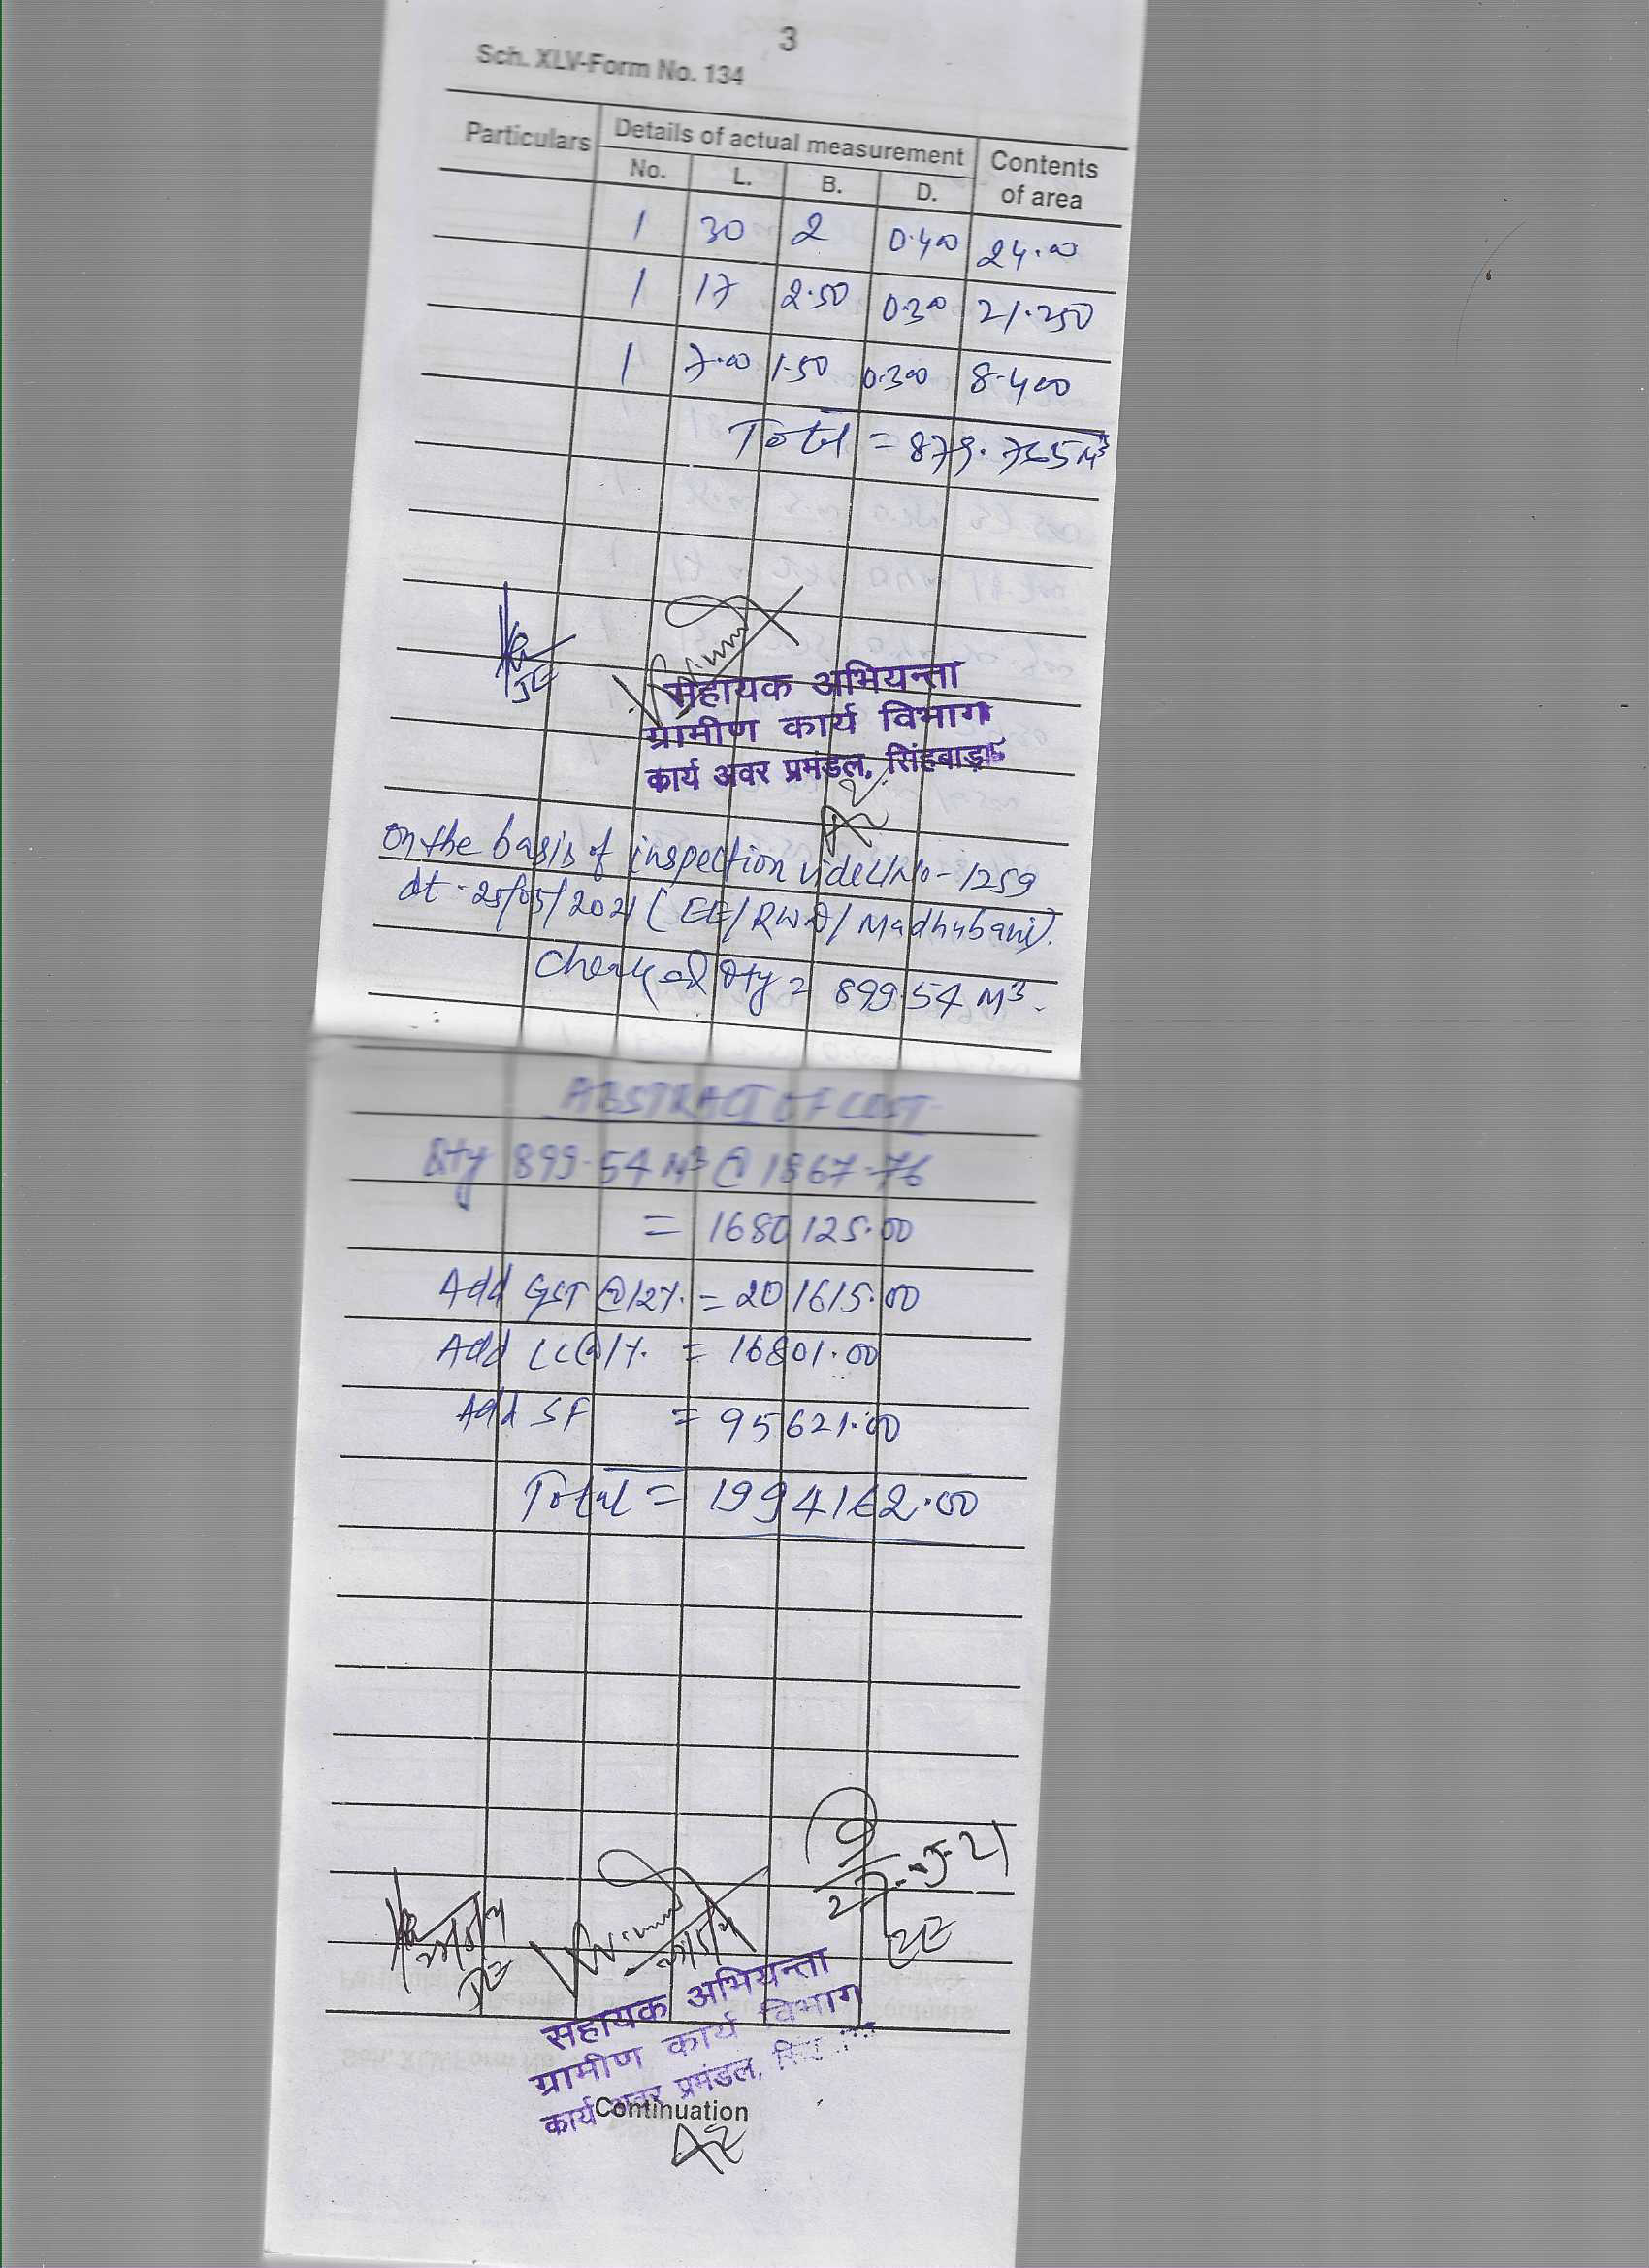 3
Sch. XLV-Form No. 134
Particulars Details of actual measurement Contents of area
No. L. B. D.
1 30 2 0.400 24.00
1 17 2.50 0.300 21.250
1 7.00 1.50 0.300 8.400
Total = 879.765 M³
JE
सहायक अभियन्ता
ग्रामीण कार्य विभाग
कार्य अवर प्रमंडल, सिंहबाड़ा
on the basis of inspection vide L/No-1259
dt - 25/05/2021 (EE/RWD/Madhubani).
Checked Qty = 899.54 M³.
ABSTRACT OF COST
Qty 899.54 M³ @ 1867.76
= 1680125.00
Add GST @12%. = 201615.00
Add LC@1%. = 16801.00
Add SF = 95621.00
Total = 1994162.00
JE
EE
सहायक अभियन्ता
ग्रामीण कार्य विभाग
कार्य अवर प्रमंडल,
Continuation
AE